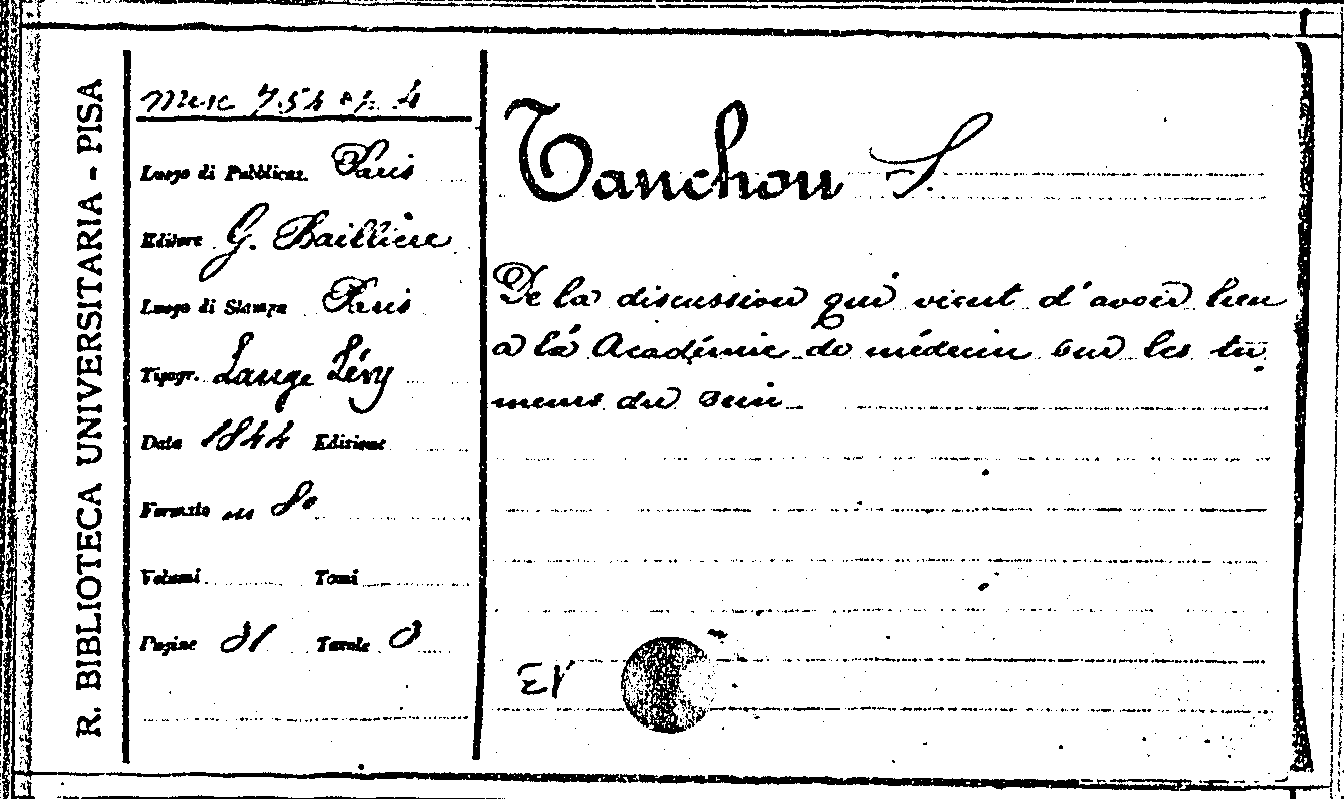 R. BIBLIOTECA UNIVERSITARIA - PISA
Misc 754 op. 4
Luogo di Pubblicaz. Paris
Editore G. Baillière
Luogo di Stampa Paris
Tipogr. Lange Lévy
Data 1844 Edizione
Formato in 8º
Volumi Tomi
Pagine 31 Tavole 0
Tanchou S.
De la discussion qui vient d'avoir lieu
a la Académie de médecin sur les tu
meurs du sein